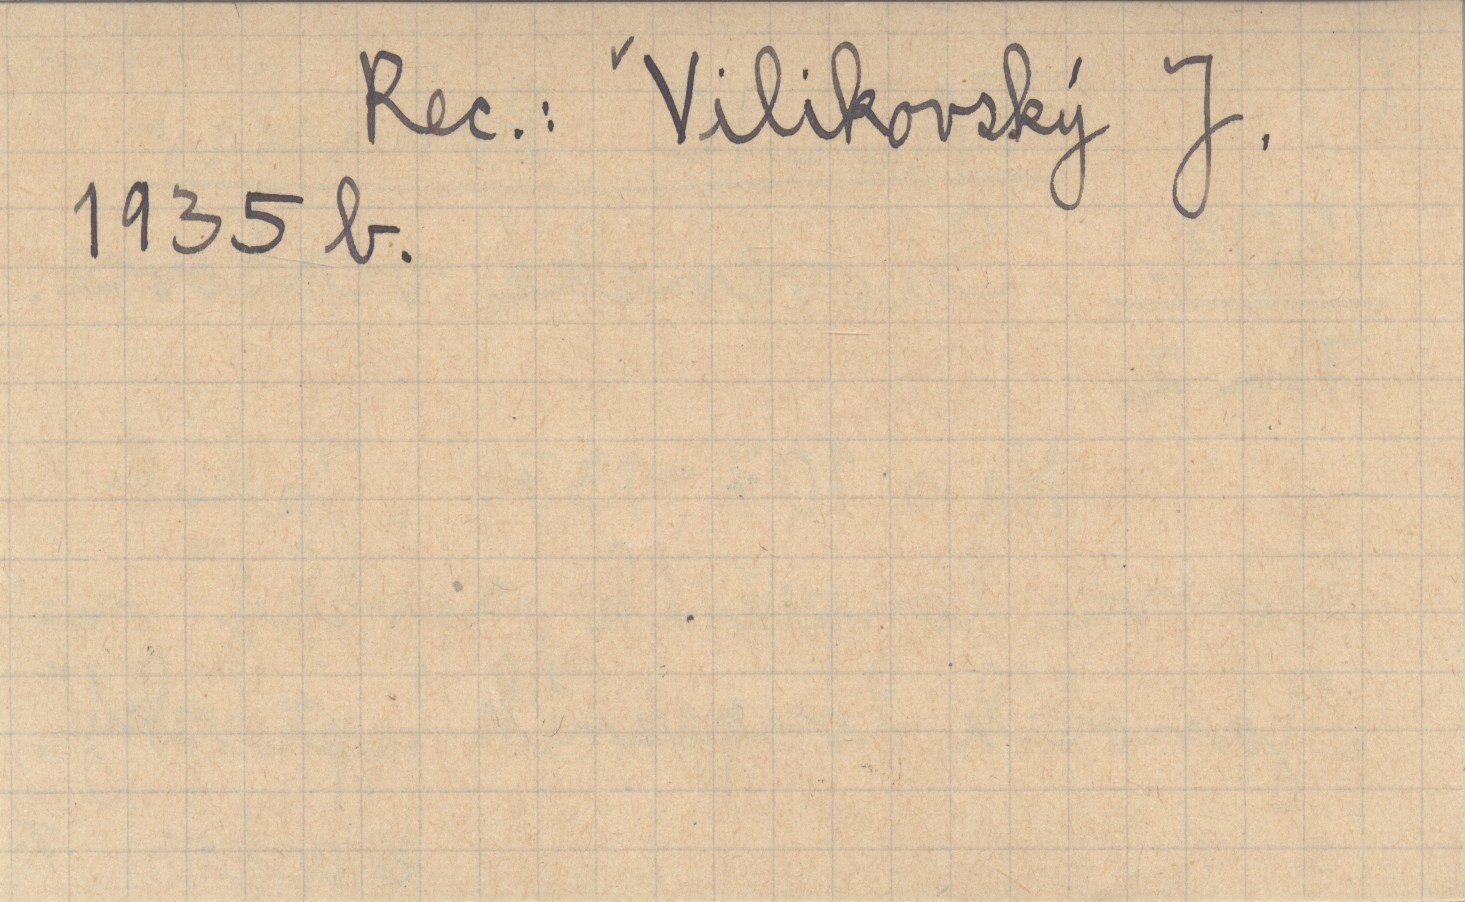 Rec.: ✓Vilikovský J.
1935 b.